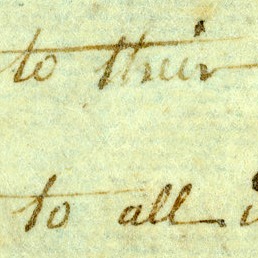 to their
to all